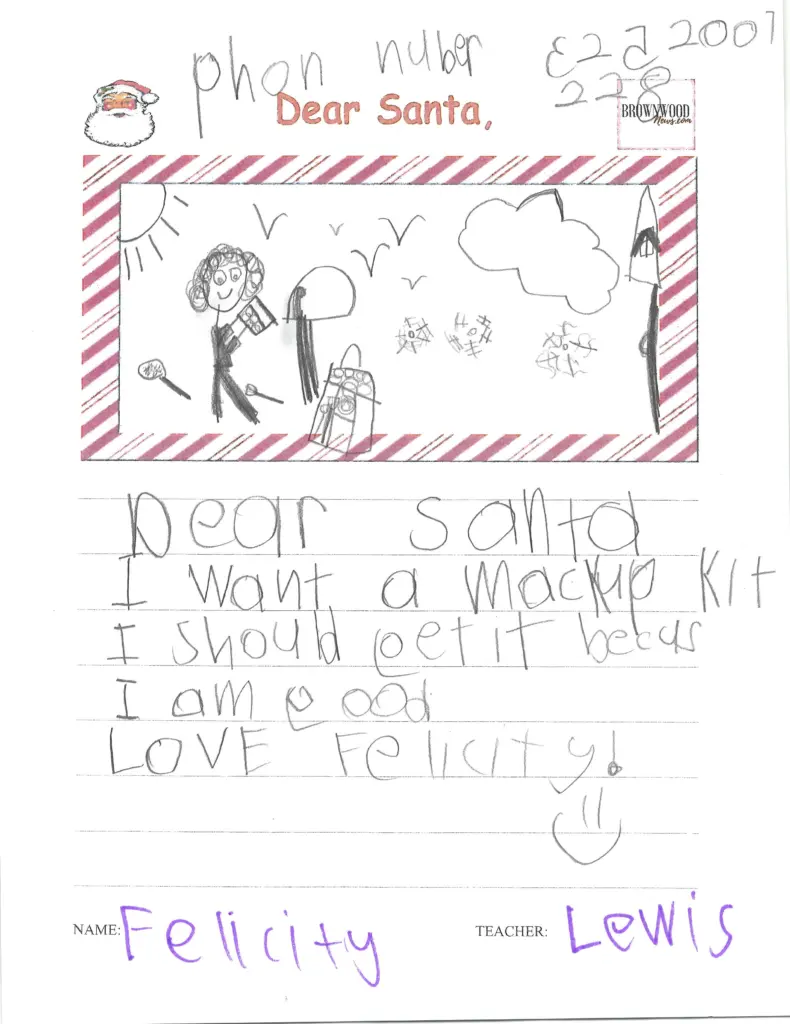 phon nuber
Dear Santa,
BROWNWOOD
News.com
Dear Santa
I want a mackup kit
I should get it becus
I am good
LOVE Felicity!
NAME: Felicity TEACHER: Lewis